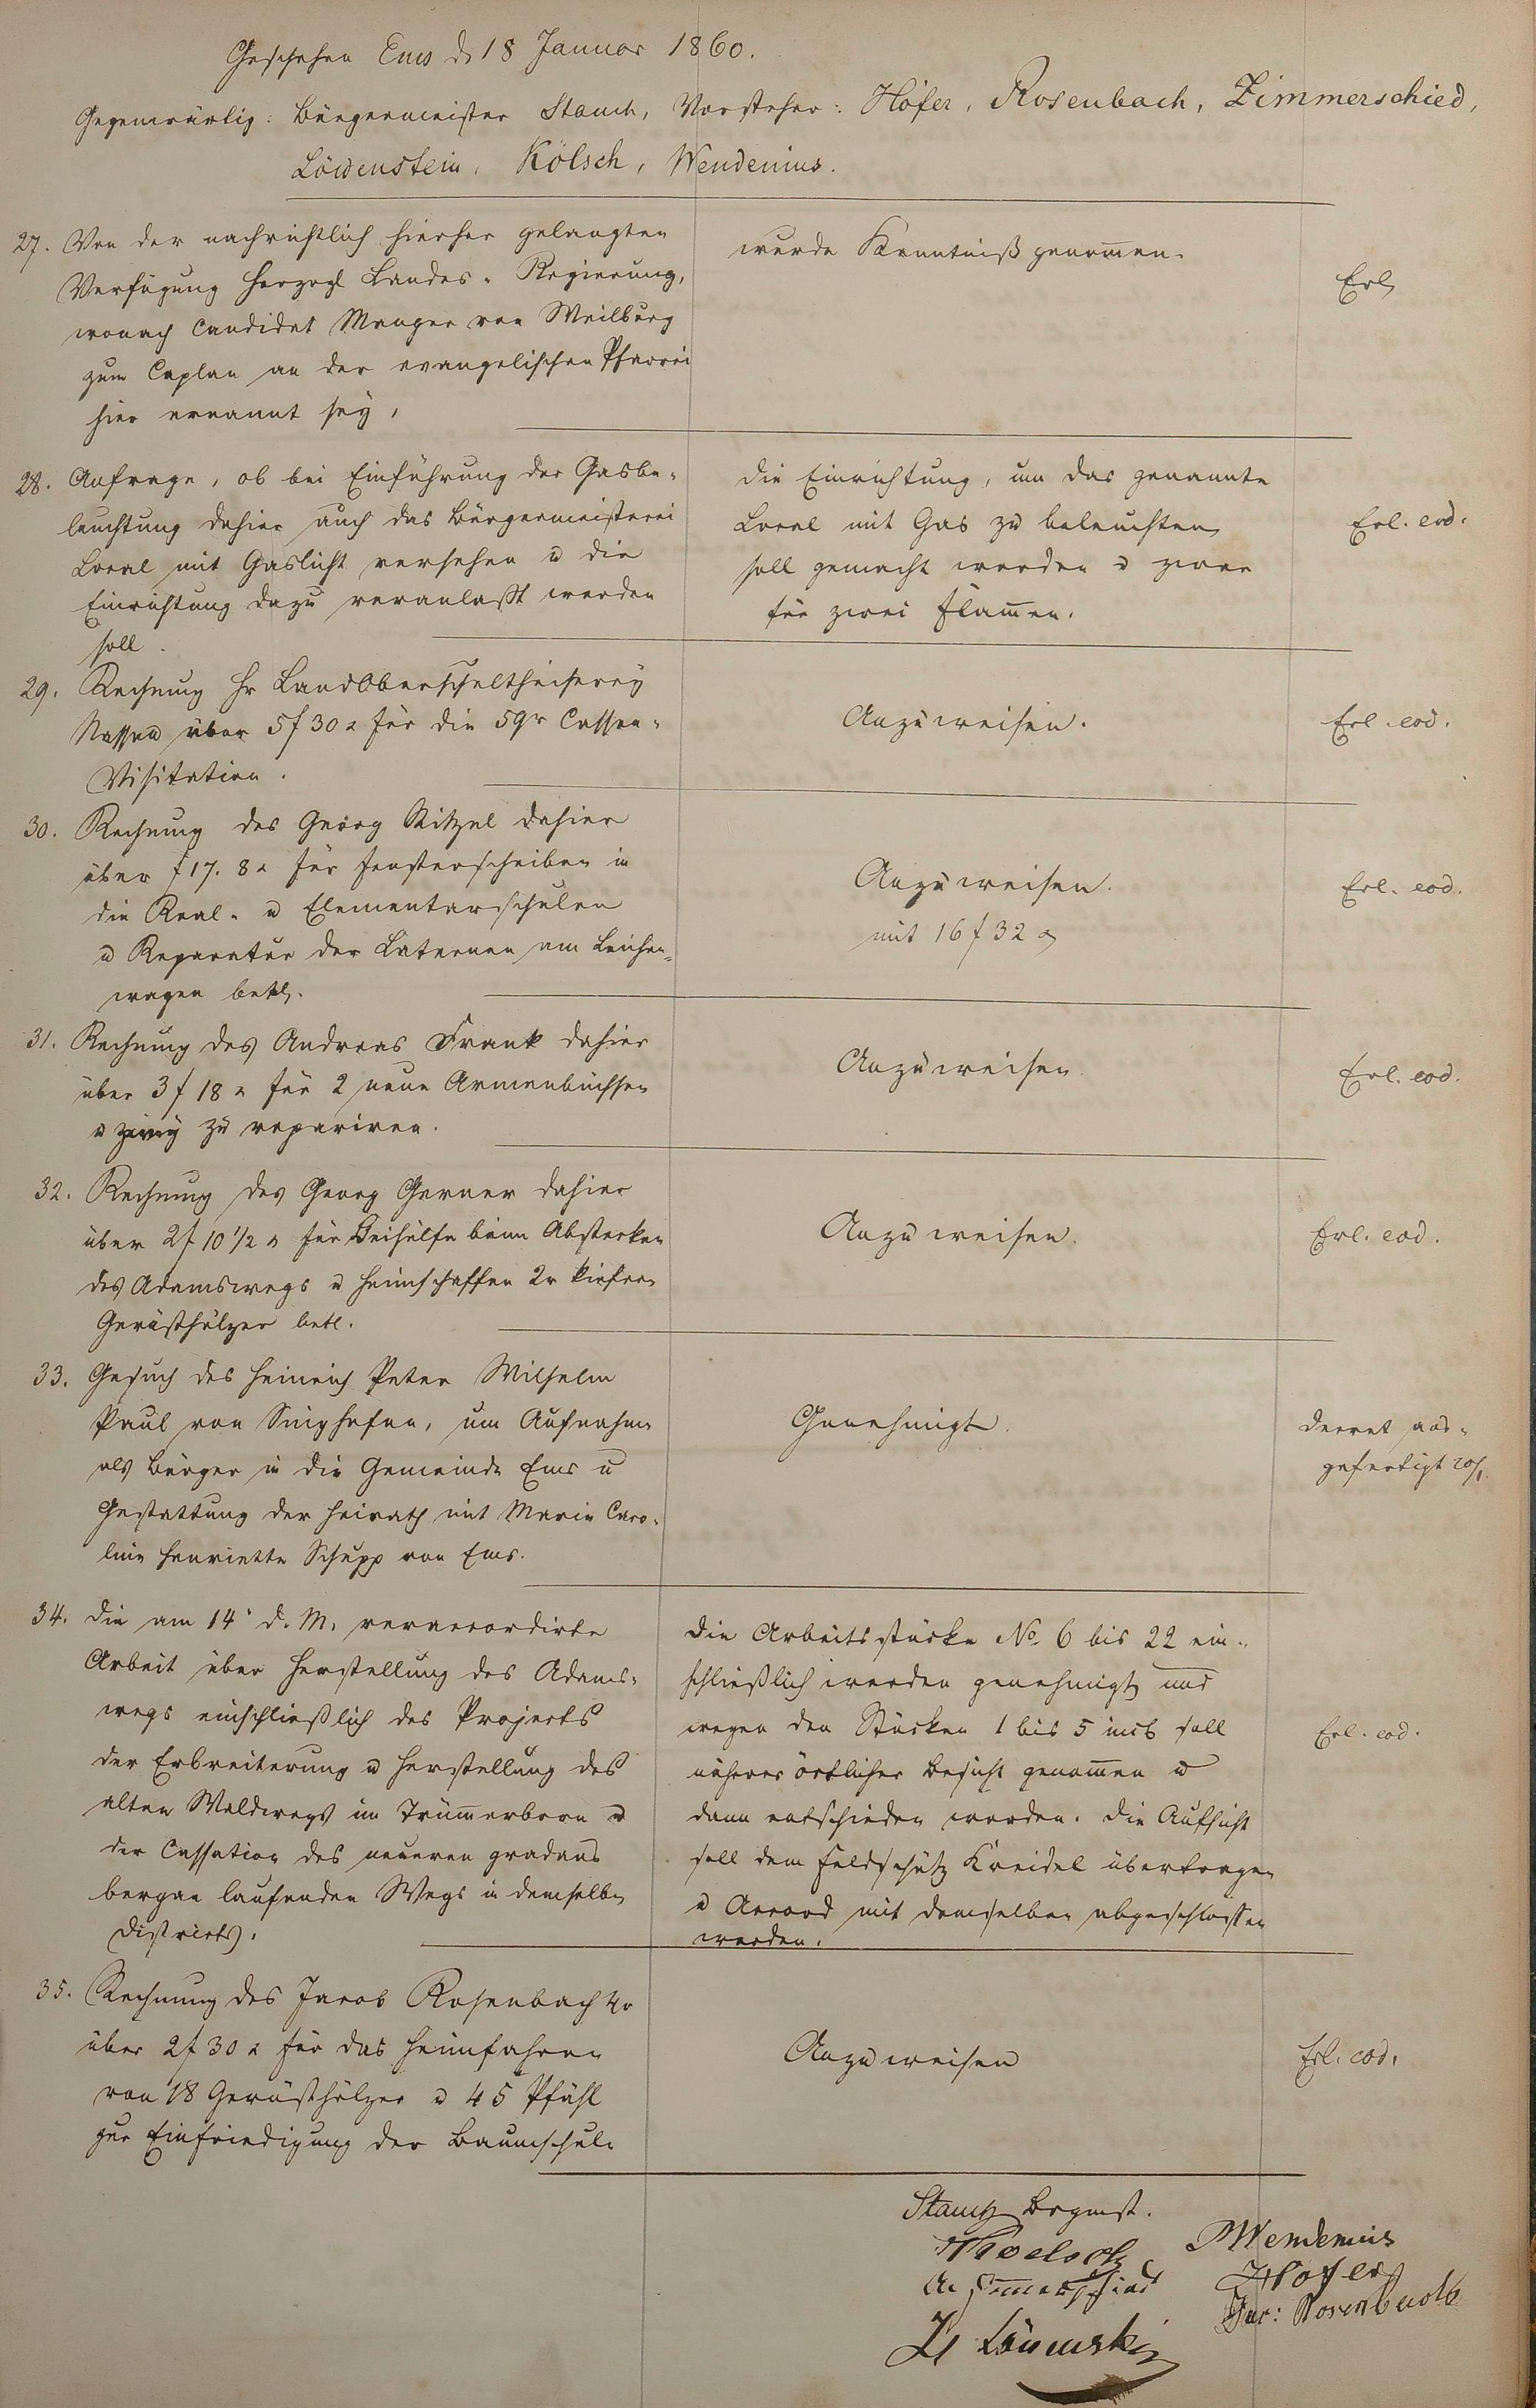 Geschehen Ems d 18 Januar 1860.
Gegenwärtig: Bürgermeister Stauch, Vorsteher: Höfer, Rosenbach, Zimmerschied,
Löwenstein, Kölsch, Wendenius.
27. Von der nachrichtlich hierher gelangten
Verfügung Herzogl Landes-Regierung,
wonach Candidat Manger von Weilburg
zum Caplan an der evangelischen Pfarrei
hier ernannt sey,
wurde Kenntniß genommen.
Erl
28. Anfrage, ob bei Einführung der Gasbe-
leuchtung dahier auch das Bürgermeisterei
Local mit Gaslicht versehen u die
Einrichtung dazu veranlaßt werden
soll.
die Einrichtung, um das genannte
Local mit Gas zu beleuchten
soll gemacht werden u zwar
für zwei Flammen.
Erl. eod.
29. Rechnung Hr LandOberschultheiserey
Nassau über 5 f 30 x für die 5gr Cassen-
Visitation.
Anzuweisen.
Erl. eod.
30. Rechnung des Georg Ritzel dahier
über f 17. 8 x für Fensterscheiben in
die Real- u Elementarschulen
u Reparatur der Laternen am Leichen-
wagen betr.
Anzuweisen.
mit 16 f 32 x
Erl. eod.
31. Rechnung des Andreas Frank dahier
über 3 f 18 x für 2 neue Armenbüchsen
u zwey zu repariren.
Anzuweisen.
Erl. eod.
32. Rechnung des Georg Gerner dahier
über 2 f 10 1/2 x für Beihülfe beim Abstecken
des Adamswegs u Heimschaffen 2r kiefern
Gerüsthölzer betr.
Anzuweisen.
Erl. eod.
33. Gesuch des Heinrich Peter Wilhelm
Paul von Singhofen, um Aufnahme
als Bürger in die Gemeinde Ems u
Gestattung der Heirath mit Marie Caro-
line Henriette Schupp von Ems.
Genehmigt.
Decret aus-
gefertigt 20/1.
34. Die am 14t d. M. veraccordirte
Arbeit über Herstellung des Adams-
wegs einschließlich des Projects
der Erbreiterung u Herstellung des
alten Waldwegs im Trümmerborn u
der Cassation des neueren gradaus
bergan laufenden Wegs in demselben
Districts.
Die Arbeitsstücke No. 6 bis 22 ein-
schließlich werden genehmigt und
wegen den Stücken 1 bis 5 incl soll
näherer örtlicher Besicht genommen u
dann entschieden werden. Die Aufsicht
soll dem Feldschütz Kreidel übertragen
u Accord mit demselben abgeschlossen
werden.
Erl. eod.
35. Rechnung des Jacob Rosenbach 4r
über 2 f 30 x für das Heimfahren
von 18 Gerüsthölzer u 45 Pfähl
zur Einfriedigung der Baumschule
Anzuweisen
Erl. eod.
Stauch Brgmst.
Koelsch
Wendenius
Zimmerschied
Höfer
Jac: Rosenbach
Löwenstein